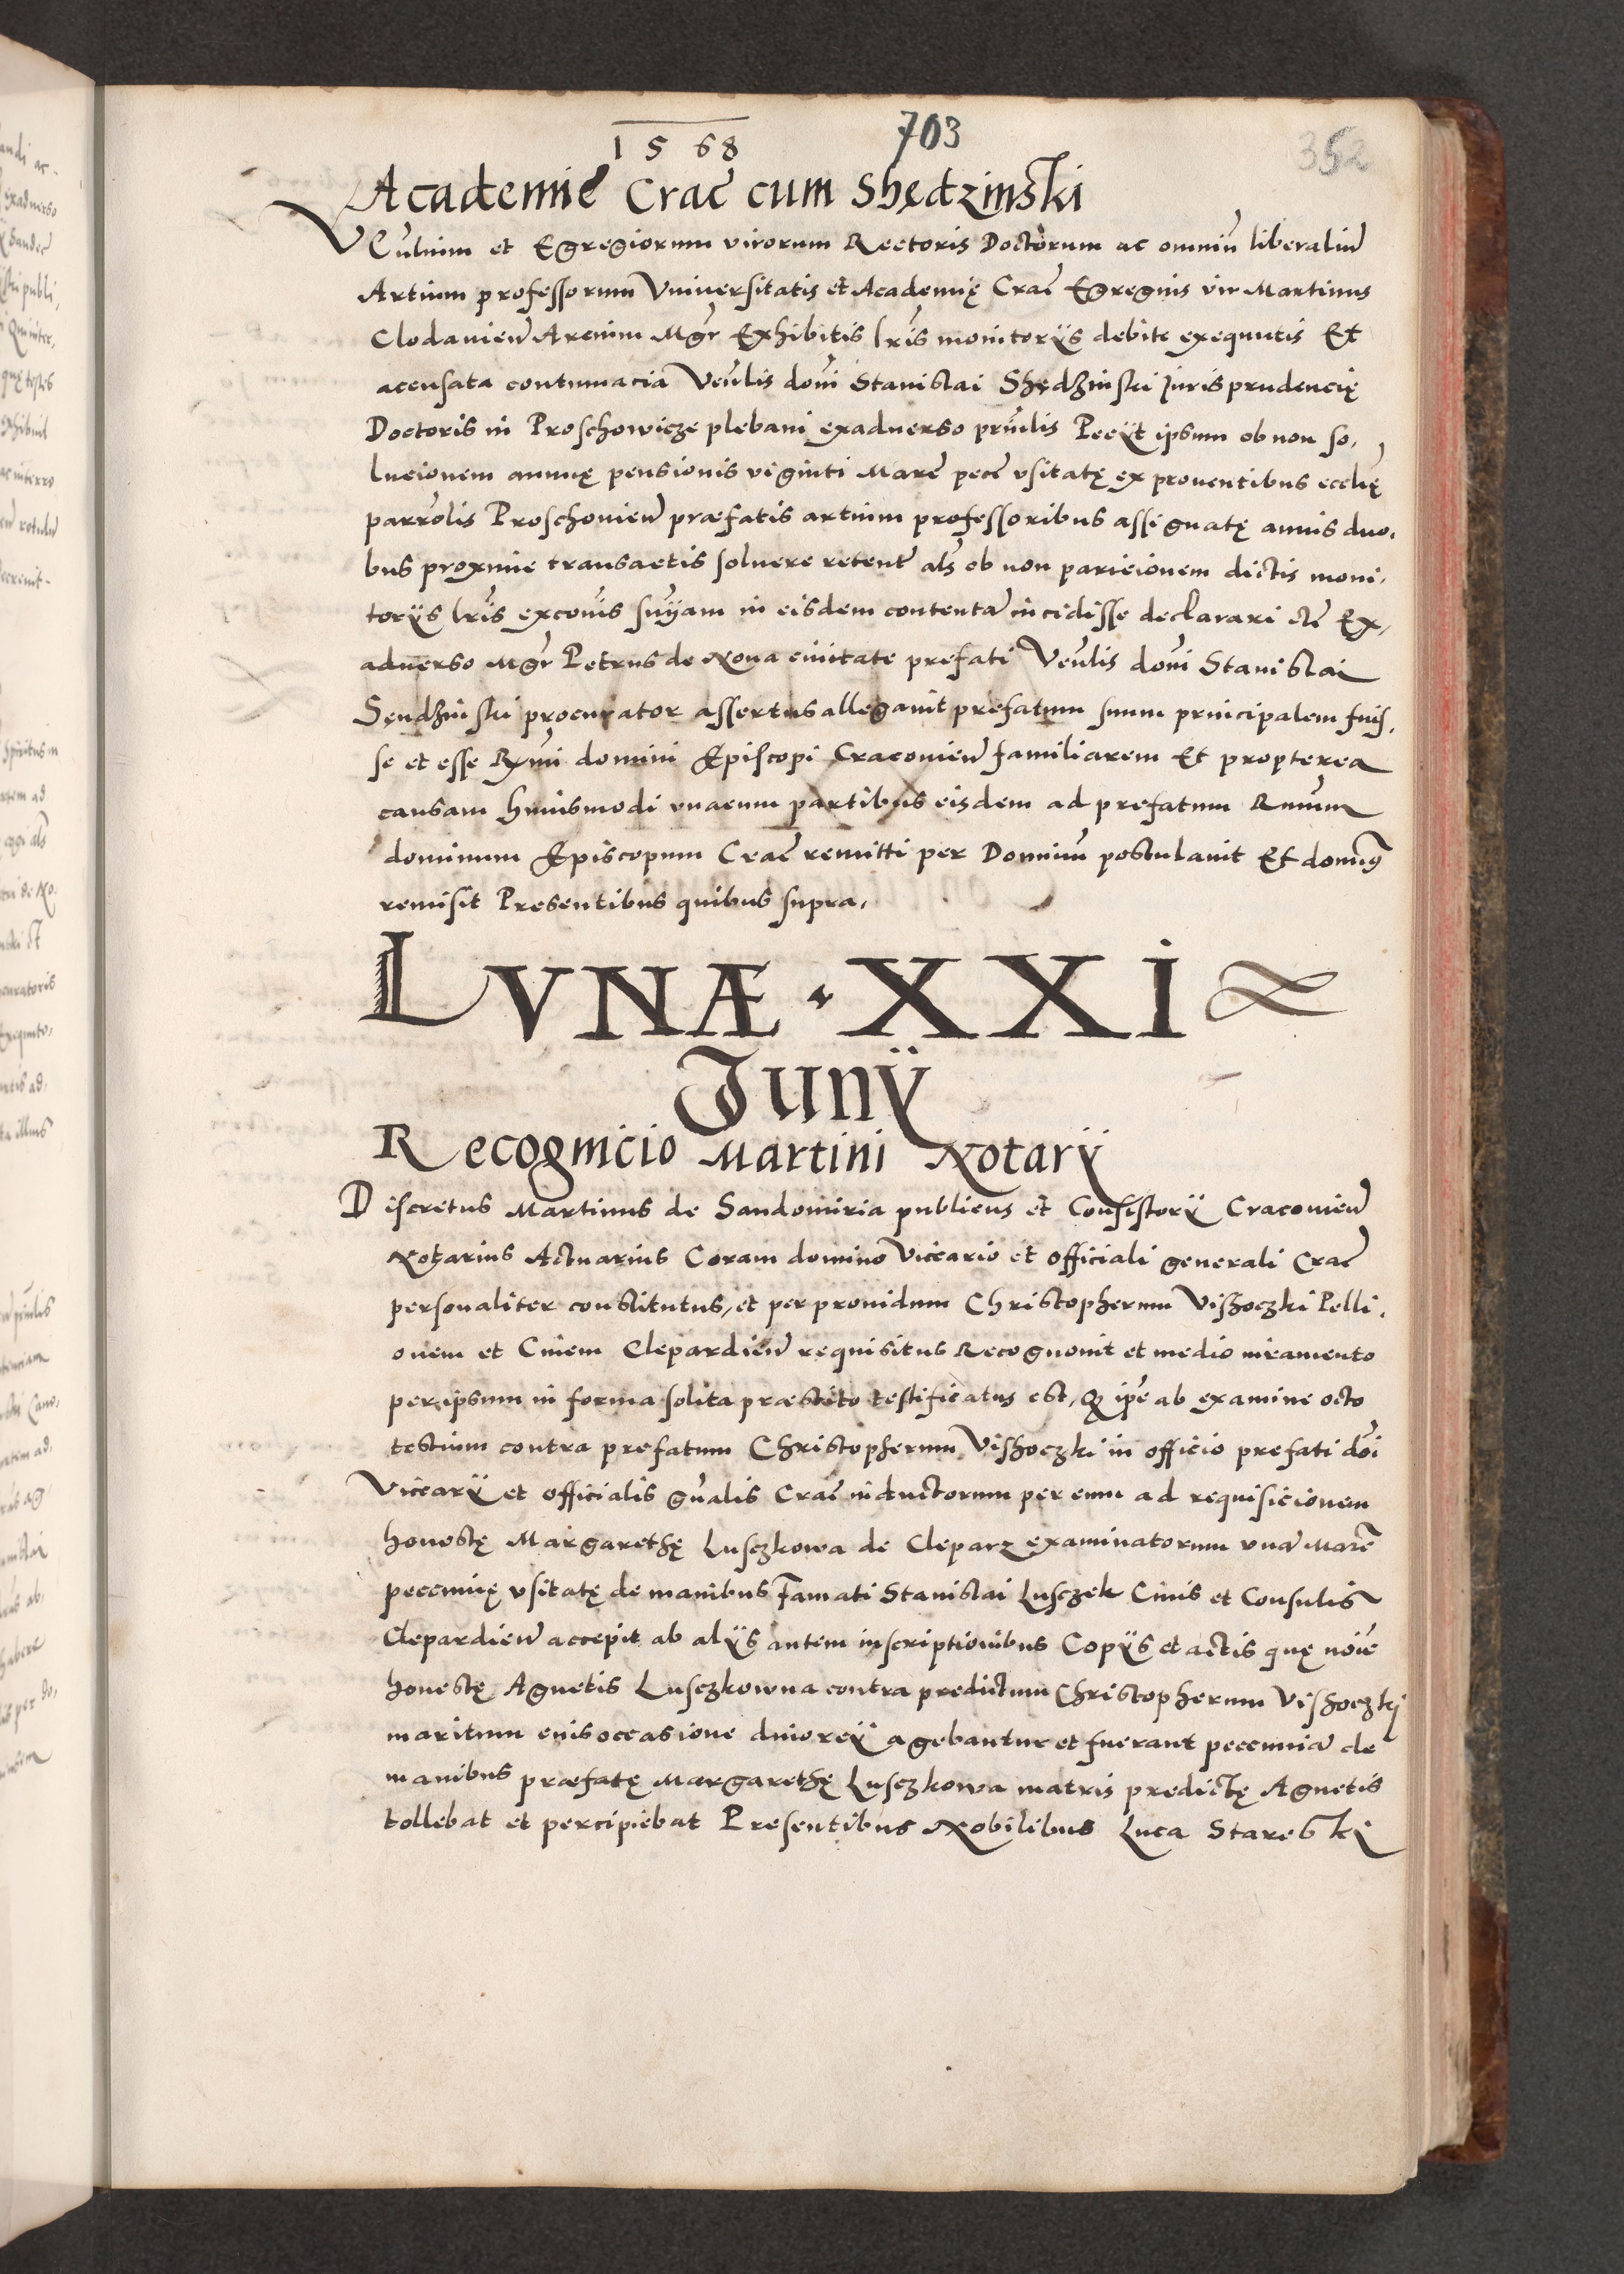 1568
703
352
Academię Crac̄ cum Shędzinski
VEn̄lium et Egregiorum virorum Rectoris Doctorum ac omniū liberaliū
Artium professorum Vniuersitatis et Academię Crac̄ Egregius vir Martinus
Clodauien̄ Arcium Mgr̄ Exhibitis lr̄is monitorÿs debite exequutis Et
accusata contumacia Ven̄lis don̄i Stanislai Shędzinski Jurisprudencię
Doctoris in Proschowicze plebani exaduerso prn̄cilis Pecÿt ipsum ob non so,
lucionem annuę pensionis viginti Marc̄ pecc̄ vsitatę ex prouentibus eccl̄ię
parrōlis Proschouien̄ præfatis artium professoribus assignatę annis duo,
bus proxime transactis soluere retent̄ als̄ ob non paricionem dictis moni,
torÿs lr̄is excōis sn̄ÿam in eisdem contentā incidisse declarari etc̄ Ex,
aduerso Mgr̄ Petrus de Noua ciuitate prefati Ven̄lis don̄i Stanislai
Sęndzinski procurator assertus allegauit prefatum suum principalem fuis,
se et esse Rx̄mi domini Episcopi Cracouien̄ familiarem Et propterea
causam huiusmodi vnacum partibus eisdem ad prefatum Rmum̄
dominum Episcopum Crac̄ remitti per Dominū postulauit Et domin9
remisit Presentibus quibus supra,
LVNÆ · XXI
Junÿ
Recognicio Martini Notarÿ
Discretus Martinus de Sandomiria publicus et Consistorÿ Cracouien̄
Notarius Actuarius Coram domino Vicario et officiali generali Crac̄
personaliter constitutus, et per prouidum Christopherum Vishoczki Pelli,
onem et Ciuem Clepardien̄ requisitus Recognouit et medio iuramento
per ipsum in forma solita præstito testificatus est, Q ip̄e ab examine octo
testium contra prefatum Christopherum Vishoczki in officio prefati dōi
Vicarÿ et officialis gn̄alis Crac̄ inductorum per eum ad requisicionem
honestę Margarethę Lusczkowa de Cleparz examinatorum vnā Marc̄
pecunię vsitatę de manibus Famati Stanislai Lusczek Ciuis et Consulis
Clepardien̄ accepit ab alÿs autem inscriptionibus Copÿs et actis quę noīe
honestę Agnetis Lusczkowna contra predictum Christopherum Vishoczkj
maritum eius occasione diuorcÿ agebantur et fuerant pecuniā de
manibus præfatę Margarethę Lusczkowa matris predictę Agnetis
tollebat et percipiebat Presentibus Nobilibus Luca Starebski